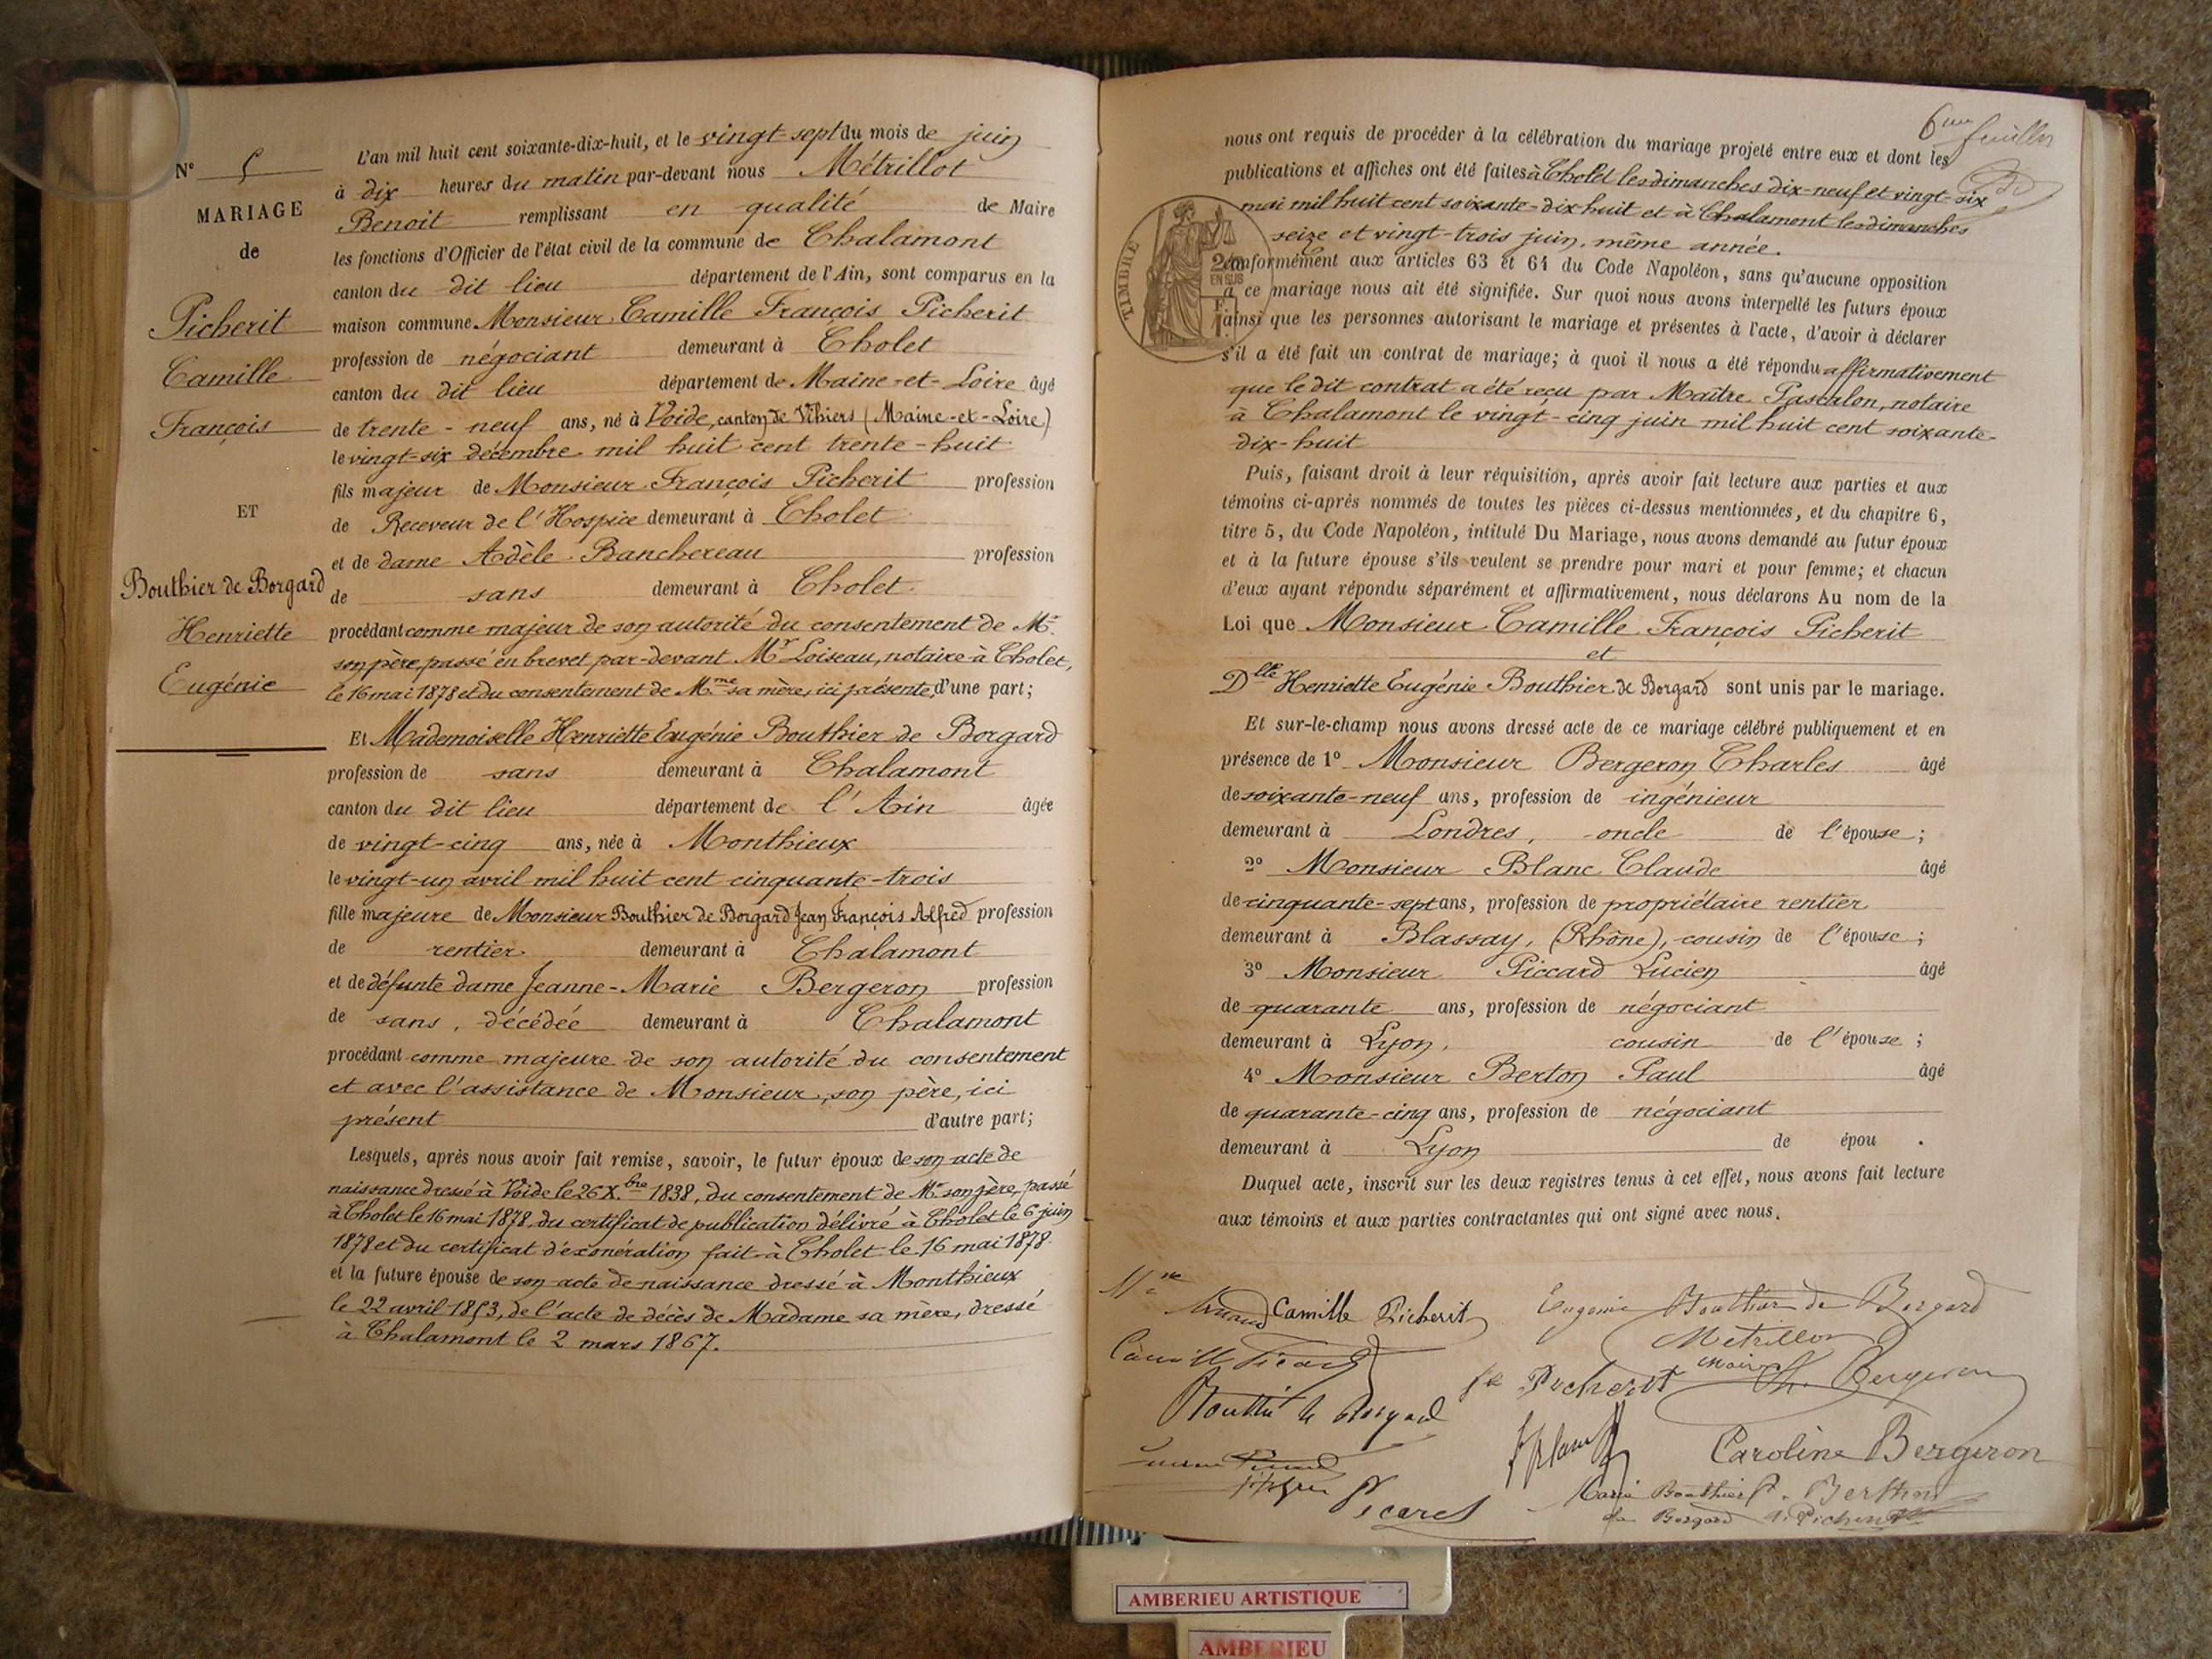 N° 5
MARIAGE
de
Picherit
Camille
François
ET
Bouthier de Borgard
Henriette
Eugénie
L'an mil huit cent soixante-dix-huit, et le vingt-sept du mois de juin
à dix heures du matin par-devant nous Métrillot
Benoit remplissant en qualité de Maire
les fonctions d'Officier de l'état civil de la commune de Chalamont
canton du dit lieu département de l'Ain, sont comparus en la
maison commune Monsieur Camille François Picherit
profession de négociant demeurant à Cholet
canton du dit lieu département de Maine-et-Loire âgé
de trente-neuf ans, né à Voide, canton de Vihiers (Maine-et-Loire)
le vingt-six décembre mil huit cent trente-huit
fils majeur de Monsieur François Picherit profession
de Receveur de l'Hospice demeurant à Cholet
et de dame Adèle Banchereau profession
de sans demeurant à Cholet
procédant comme majeur de son autorité du consentement de Mr
son père, passé en brevet par-devant Mr Loiseau, notaire à Cholet,
le 16 mai 1878 et du consentement de Mme sa mère, ici présente, d'une part;
Et Mademoiselle Henriette Eugénie Bouthier de Borgard
profession de sans demeurant à Chalamont
canton du dit lieu département de l'Ain âgée
de vingt-cinq ans, née à Monthieux
le vingt-un avril mil huit cent cinquante-trois
fille majeure de Monsieur Bouthier de Borgard Jean François Alfred profession
de rentier demeurant à Chalamont
et de défunte dame Jeanne-Marie Bergeron profession
de sans, décédée demeurant à Chalamont
procédant comme majeure de son autorité du consentement
et avec l'assistance de Monsieur, son père, ici
présent d'autre part;
Lesquels, après nous avoir fait remise, savoir, le futur époux de son acte de
naissance dressé à Voide le 26 Xbre 1838, du consentement de Mr son père, passé
à Cholet le 16 mai 1878, du certificat de publication délivré à Cholet le 6 juin
1878 et du certificat d'exonération fait à Cholet le 16 mai 1878.
et la future épouse de son acte de naissance dressé à Monthieux
le 22 avril 1853, de l'acte de décès de Madame sa mère, dressé
à Chalamont le 2 mars 1867.
6me feuillet
nous ont requis de procéder à la célébration du mariage projeté entre eux et dont les
publications et affiches ont été faites à Cholet les dimanches dix-neuf et vingt-six
mai mil huit cent soixante-dix huit et à Chalamont les dimanches
seize et vingt-trois juin, même année.
TIMBRE
EN SUS
conformément aux articles 63 et 64 du Code Napoléon, sans qu'aucune opposition
à ce mariage nous ait été signifiée. Sur quoi nous avons interpellé les futurs époux
ainsi que les personnes autorisant le mariage et présentes à l'acte, d'avoir à déclarer
s'il a été fait un contrat de mariage; à quoi il nous a été répondu affirmativement
que le dit contrat a été reçu par Maître Pascalon, notaire
à Chalamont le vingt-cinq juin mil huit cent soixante-
dix-huit
Puis, faisant droit à leur réquisition, après avoir fait lecture aux parties et aux
témoins ci-après nommés de toutes les pièces ci-dessus mentionnées, et du chapitre 6,
titre 5, du Code Napoléon, intitulé Du Mariage, nous avons demandé au futur époux
et à la future épouse s'ils veulent se prendre pour mari et pour femme; et chacun
d'eux ayant répondu séparément et affirmativement, nous déclarons Au nom de la
Loi que Monsieur Camille François Picherit
et
Dlle Henriette Eugénie Bouthier de Borgard sont unis par le mariage.
Et sur-le-champ nous avons dressé acte de ce mariage célébré publiquement et en
présence de 1° Monsieur Bergeron Charles âgé
de soixante-neuf ans, profession de ingénieur
demeurant à Londres, oncle de l'épouse;
2° Monsieur Blanc Claude âgé
de cinquante-sept ans, profession de propriétaire rentier
demeurant à Blassay, (Rhône), cousin de l'épouse;
3° Monsieur Piccard Lucien âgé
de quarante ans, profession de négociant
demeurant à Lyon, cousin de l'épouse;
4° Monsieur Berton Paul âgé
de quarante-cinq ans, profession de négociant
demeurant à Lyon de épou .
Duquel acte, inscrit sur les deux registres tenus à cet effet, nous avons fait lecture
aux témoins et aux parties contractantes qui ont signé avec nous.
Camille Picherit Eugénie Bouthier de Borgard
Métrillot
Maire
Picherit Ch. Bergeron
Bouthier de Borgard
Caroline Bergeron
Picard
Marie Bouthier
de Borgard
AMBERIEU ARTISTIQUE
AMBERIEU